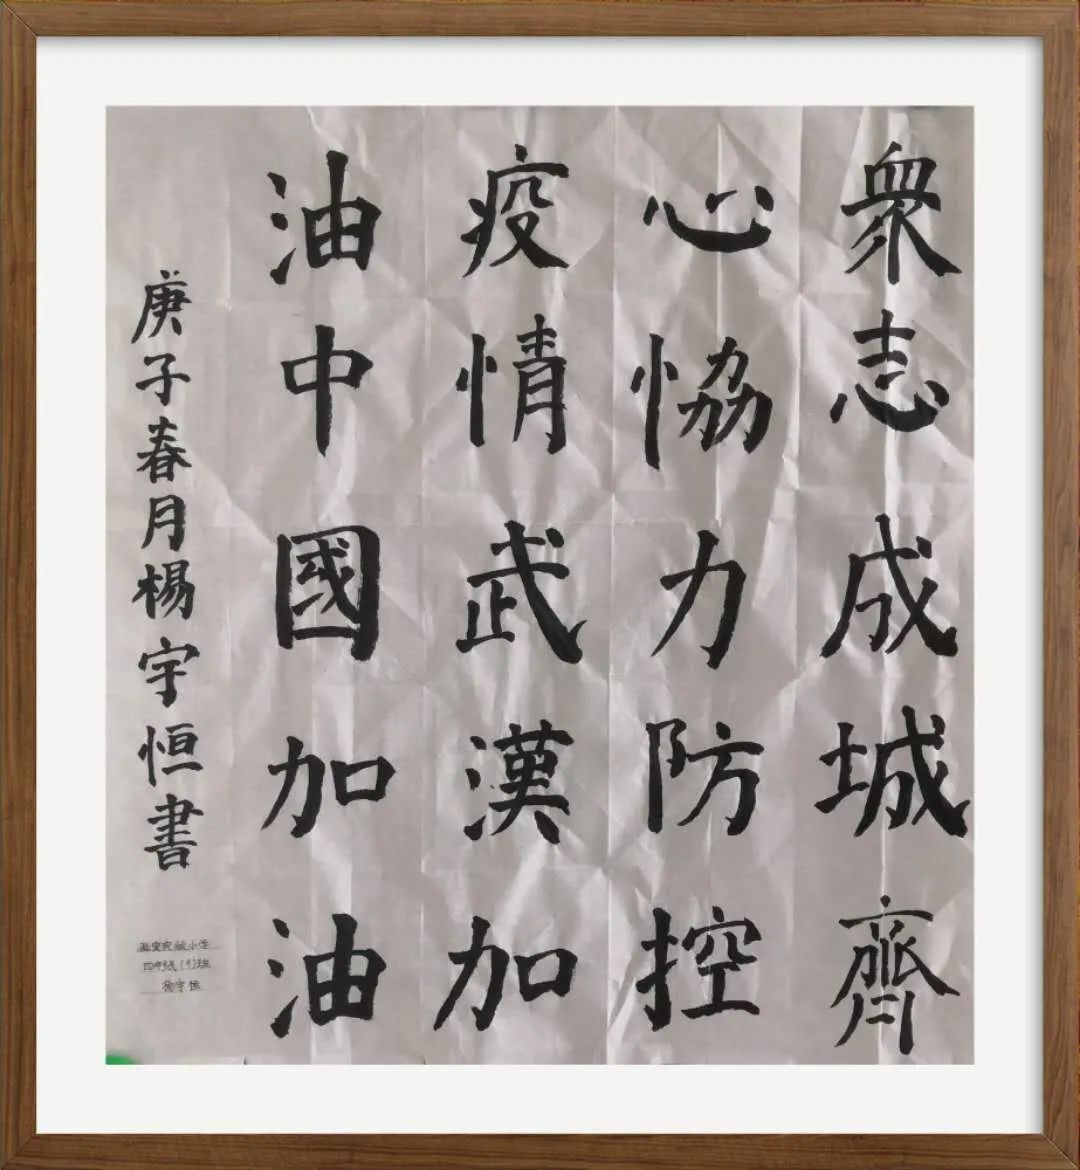 衆志成城齊
心協力防控
疫情武漢加
油中國加油
庚子春月楊宇恒書
四年级(9)班